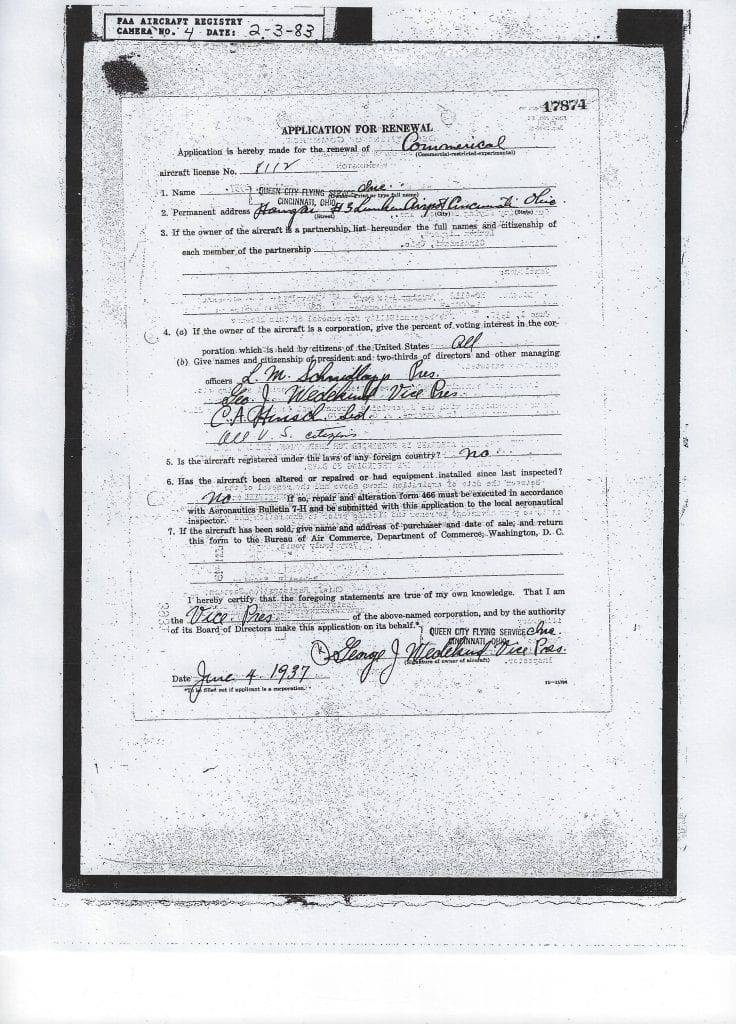 FAA AIRCRAFT REGISTRY
CAMERA NO. 4 DATE: 2-3-83
17874
APPLICATION FOR RENEWAL
Application is hereby made for the renewal of Commerical
(Commercial-restricted-experimental)
aircraft license No. 8112
1. Name QUEEN CITY FLYING SERVICE Inc.
CINCINNATI, OHIO
2. Permanent address Hangar #3 Lunken Airport Cincinnati Ohio
(Street) (City) (State)
3. If the owner of the aircraft is a partnership, list hereunder the full names and citizenship of
each member of the partnership
4. (a) If the owner of the aircraft is a corporation, give the percent of voting interest in the cor-
poration which is held by citizens of the United States All
(b) Give names and citizenship of president and two-thirds of directors and other managing
officers L. M. Schmidlapp Pres.
Geo. J. Wedekind Vice Pres.
C. A. Hinsch
All U. S. citizens
5. Is the aircraft registered under the laws of any foreign country? no
6. Has the aircraft been altered or repaired or had equipment installed since last inspected?
no If so, repair and alteration form 466 must be executed in accordance
with Aeronautics Bulletin 7-H and be submitted with this application to the local aeronautical
inspector.
7. If the aircraft has been sold, give name and address of purchaser and date of sale, and return
this form to the Bureau of Air Commerce, Department of Commerce, Washington, D. C.
I hereby certify that the foregoing statements are true of my own knowledge. That I am
the Vice Pres of the above-named corporation, and by the authority
of its Board of Directors make this application on its behalf.*
QUEEN CITY FLYING SERVICE Inc.
CINCINNATI, OHIO
George J. Wedekind Vice Pres.
(Signature of owner of aircraft)
Date June 4, 1937
*To be filled out if applicant is a corporation.